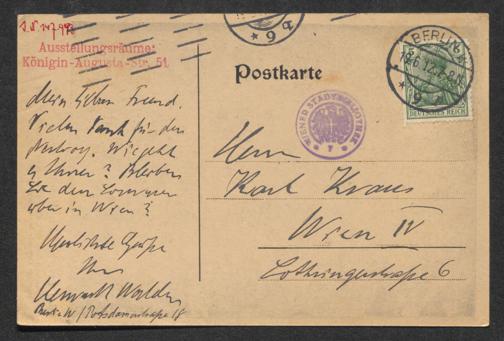 I.N. 147.992
Ausstellungsräume:
Königin-Augusta-Str. 51
Postkarte
BERLIN
* 9
* 9 a
DEUTSCHES REICH
WIENER STADTBIBLIOTHEK
Mein lieber Freund.
Vielen Dank für den
Wie geht
es Ihnen? Bleiben
Sie den Sommer
über in Wien?
Herzlichste Grüße
Ihr
Herwarth Walden
Berlin W / Potsdamerstraße 18
Herrn
Karl Kraus
Wien IV
Lothringerstraße 6